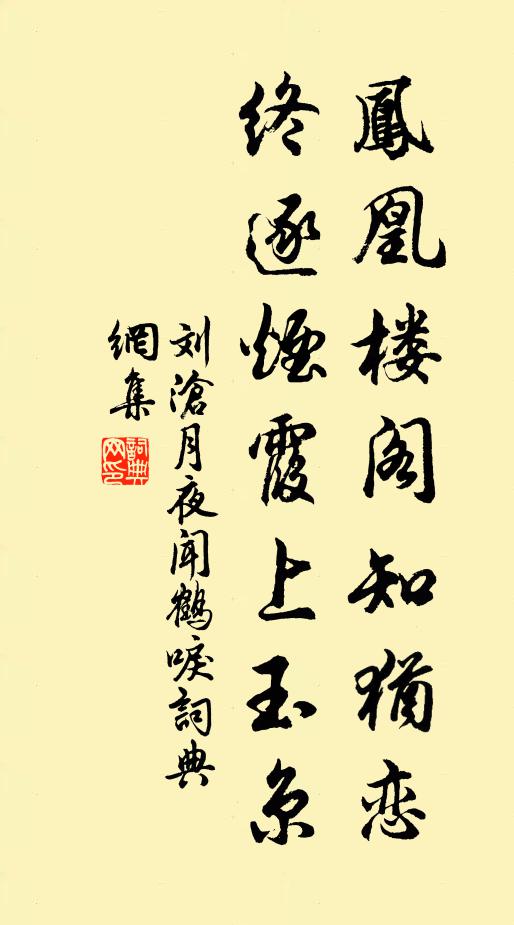 鳳凰楼阁知猶恋
終逐煙霞上玉京
刘滄月夜闻鶴唳詞典
網集
詞典网印